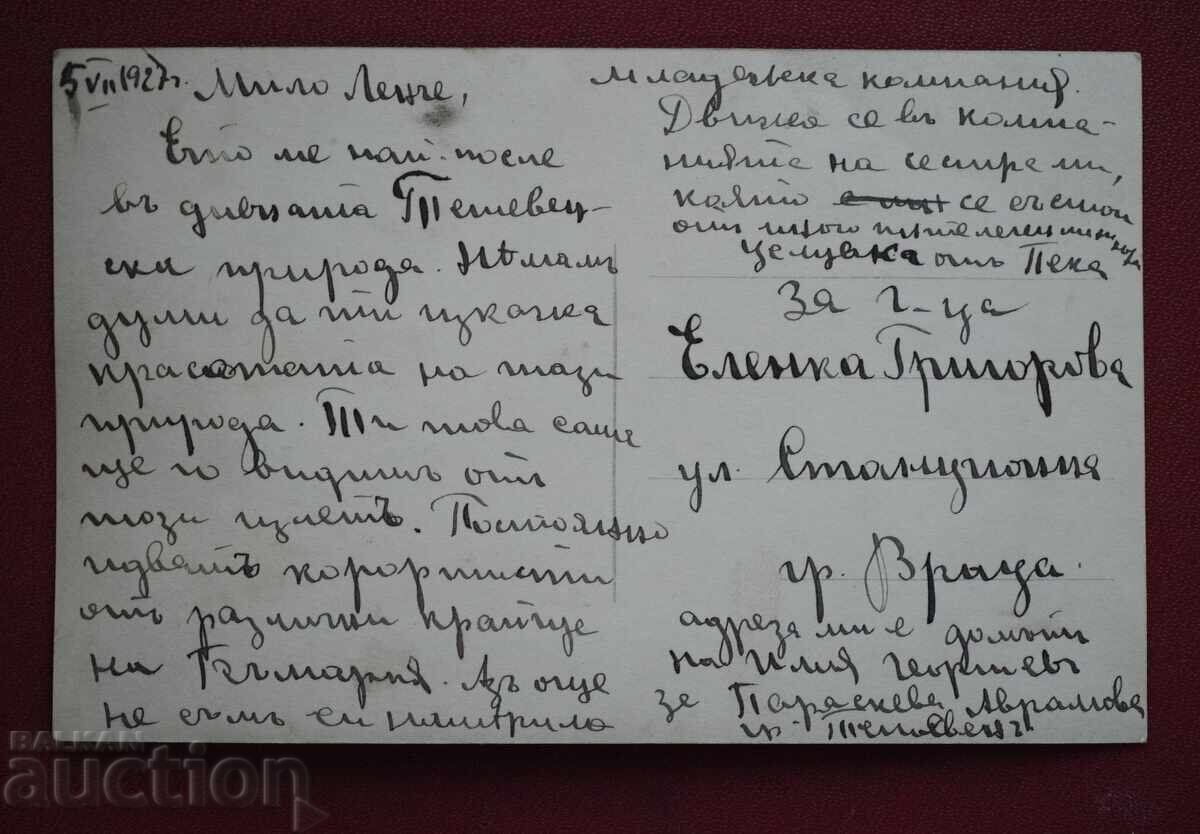 5 VII 1927 г.
Мило Ленче,
Ето ме най-после
въ дивната Тетевен-
ска природа. Нѣмамъ
думи да ти искажа
красотата на тази
природа. Ти това сама
ще го видишъ от
този излетъ. Постоянно
идватъ курортисти
отъ различни краища
на България. Азъ още
не съмъ си намѣрила
младежка компания.
Движа се въ компа-
нията на сестра ми,
която се състои
отъ много интелегентни
Целувка отъ Пека
За г-ца
Еленка Григорова
ул. Станционна
гр. Враца.
адреза ми е домътъ
на Илия Георгиевъ
за Параскева Аврамова
гр. Тетевенъ
BALKAN
auction